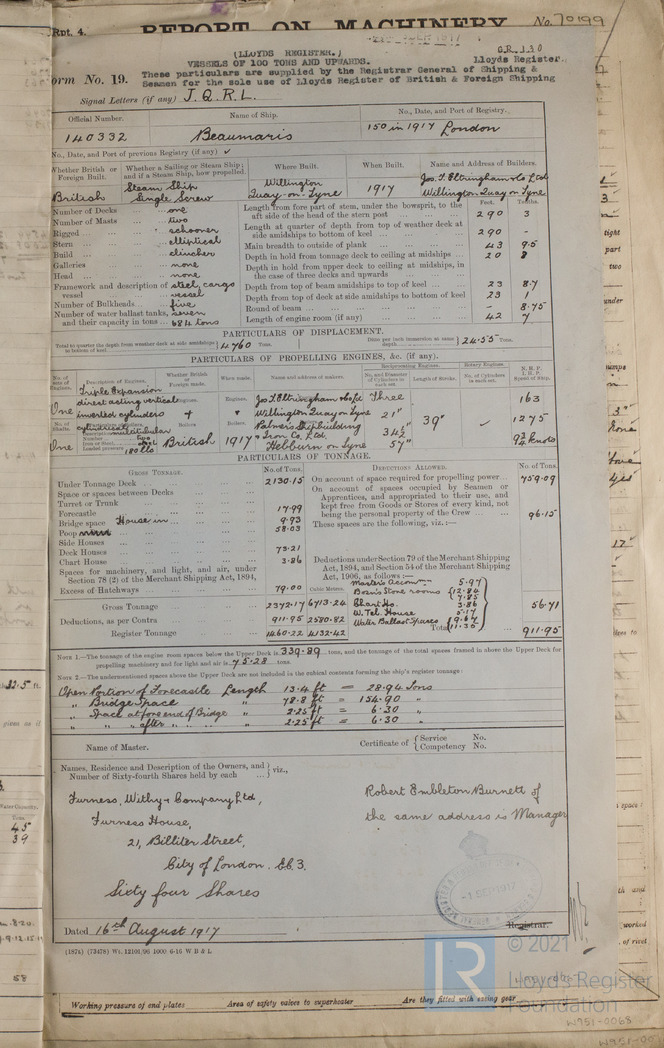 Rpt. 4.
REPORT ON MACHINERY
No. 70199
(LLOYDS REGISTER.)
G.R. 130
VESSELS OF 100 TONS AND UPWARDS.
Lloyds Register.
orm No. 19.
These particulars are supplied by the Registrar General of Shipping &
Seamen for the sole use of Lloyds Register of British & Foreign Shipping
Signal Letters (if any) J.Q.R.L.
Official Number. Name of Ship. No., Date, and Port of Registry.
140332 Beaumaris 150 in 1917 London
No., Date, and Port of previous Registry (if any)
Whether British or Foreign Built. Whether a Sailing or Steam Ship; and if a Steam Ship, how propelled. Where Built. When Built. Name and Address of Builders.
British Steam Ship Single Screw Willington Quay-on-Tyne 1917 Jos. T. Eltringham & Co Ltd Willington Quay on Tyne
Feet. Tenths.
Number of Decks one
Number of Masts two
Rigged schooner
Stern elliptical
Build clincher
Galleries none
Head none
Framework and description of vessel steel, cargo vessel
Number of Bulkheads five
Number of water ballast tanks, seven
and their capacity in tons 684 tons
Length from fore part of stem, under the bowsprit, to the aft side of the head of the stern post 290 3
Length at quarter of depth from top of weather deck at side amidships to bottom of keel 290 -
Main breadth to outside of plank 43 9.5
Depth in hold from tonnage deck to ceiling at midships 20 8
Depth in hold from upper deck to ceiling at midships, in the case of three decks and upwards
Depth from top of beam amidships to top of keel 23 8.7
Depth from top of deck at side amidships to bottom of keel 23 1
Round of beam - 8.75
Length of engine room (if any) 42 7
PARTICULARS OF DISPLACEMENT.
Total to quarter the depth from weather deck at side amidships to bottom of keel 4760 Tons.
Ditto per inch immersion at same depth 24.55 Tons.
PARTICULARS OF PROPELLING ENGINES, &c. (if any).
No. of sets of Engines. Description of Engines. Whether British or Foreign made. When made. Name and address of makers. Reciprocating Engines. No. and Diameter of Cylinders in each set. Length of Stroke. Rotary Engines. No. of Cylinders in each set. N.H.P. I.H.P. Speed of Ship.
One Triple Expansion direct acting vertical inverted cylinders
Engines. Jos T. Eltringham & Co Ld Willington Quay on Tyne
Three 21" 34½" 57" 39"
163
1275
9¾ knots
One cylindrical multitubular
Number two
Iron or Steel steel
Loaded pressure 180 lbs
British 1917 Palmer's Shipbuilding & Iron Co. Ltd. Hebburn on Tyne
PARTICULARS OF TONNAGE.
GROSS TONNAGE. No. of Tons. DEDUCTIONS ALLOWED. No. of Tons.
Under Tonnage Deck 2130.15
Space or spaces between Decks
Turret or Trunk
Forecastle 17.99
Bridge space House in 9.93
Poop 58.03
Side Houses
Deck Houses 73.21
Chart House 3.86
Spaces for machinery, and light, and air, under Section 78 (2) of the Merchant Shipping Act, 1894,
Excess of Hatchways 79.00
Cubic Metres.
Gross Tonnage 2372.17 6713.24
Deductions, as per Contra 911.95 2580.82
Register Tonnage 1460.22 4132.42
On account of space required for propelling power 759.09
On account of spaces occupied by Seamen or Apprentices, and appropriated to their use, and kept free from Goods or Stores of every kind, not being the personal property of the Crew 96.15
These spaces are the following, viz.:—
Deductions under Section 79 of the Merchant Shipping Act, 1894, and Section 54 of the Merchant Shipping Act, 1906, as follows:—
Master's Accomn 5.97
Bosn's Store rooms 12.84
7.85
Chart Ho. 3.86
W. Tel. House 5.17
Water Ballast Spaces 9.67
11.35
56.71
Total 911.95
NOTE 1.—The tonnage of the engine room spaces below the Upper Deck is 339.89 tons, and the tonnage of the total spaces framed in above the Upper Deck for
propelling machinery and for light and air is 75.28 tons.
NOTE 2.—The undermentioned spaces above the Upper Deck are not included in the cubical contents forming the ship's register tonnage:—
Open Portion of Forecastle Length 13.4 ft = 28.94 tons
" Bridge Space " 78.8 ft = 154.90 "
" Space at fore end of Bridge " 2.25 ft = 6.30 "
" " " after " " " 2.25 ft = 6.30 "
Name of Master. Certificate of { Service No.
Competency No.
Names, Residence and Description of the Owners, and
Number of Sixty-fourth Shares held by each } viz.,
Furness, Withy & Company Ltd,
Furness House,
21, Billiter Street,
City of London. E.C.3.
Sixty four Shares
Robert Embleton Burnett of
the same address is Manager
1 SEP 1917
Dated 16th August 1917
Registrar.
(187a) (73478) Wt. 12101/96 1000 6-16 W B & L
Working pressure of end plates Area of safety valves to superheater Are they fitted with easing gear
© 2021
Lloyd's Register
Foundation
W951-0068